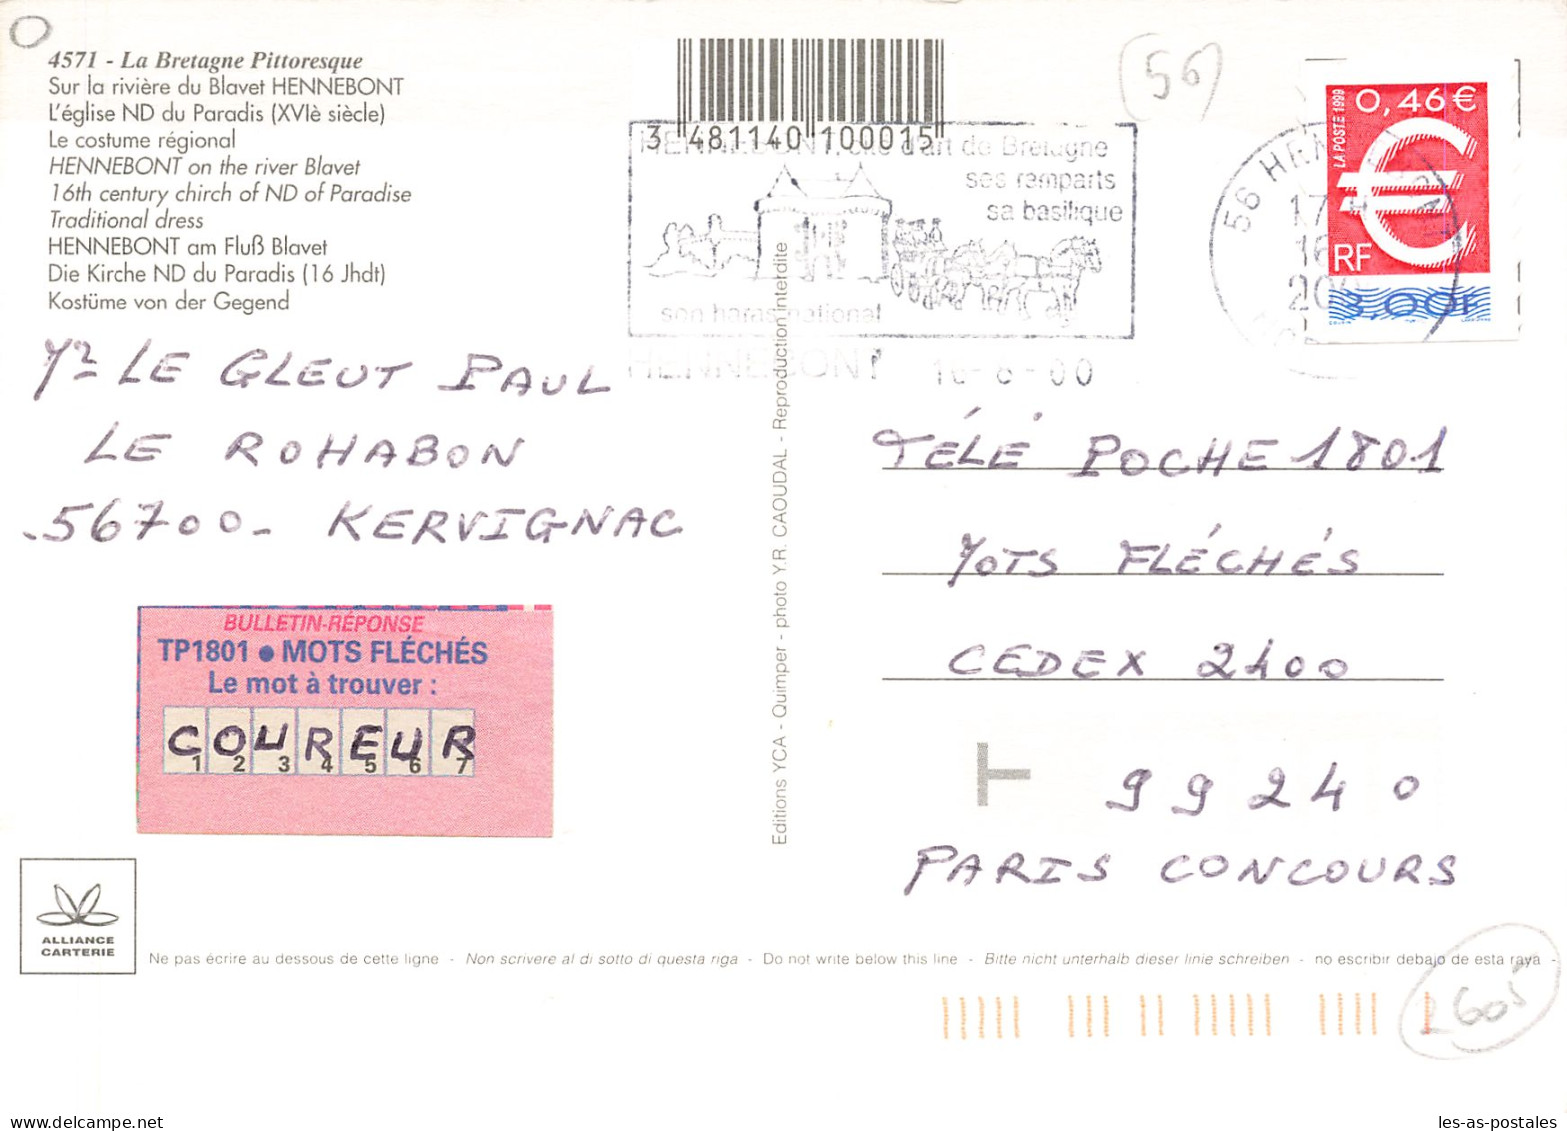 4571 - La Bretagne Pittoresque
Sur la rivière du Blavet HENNEBONT
L'église ND du Paradis (XVIè siècle)
Le costume régional
HENNEBONT on the river Blavet
16th century chirch of ND of Paradise
Traditional dress
HENNEBONT am Fluß Blavet
Die Kirche ND du Paradis (16 Jhdt)
Kostüme von der Gegend
3 481140 100015
HENNEBONT, cité d'art de Bretagne
ses remparts
sa basilique
son haras national
HENNEBONT 16-6-00
(56)
56 HEN
17 H
16
200
LA POSTE 1999
0,46 €
RF
3,00F
Mr LE GLEUT PAUL
LE ROHABON
56700 - KERVIGNAC
BULLETIN-RÉPONSE
TP1801 ● MOTS FLÉCHÉS
Le mot à trouver :
COUREUR
1 2 3 4 5 6 7
Editions YCA - Quimper - photo Y.R. CAOUDAL - Reproduction interdite
TÉLÉ POCHE 1801
MOTS FLÉCHÉS
CEDEX 2400
T
99240
PARIS CONCOURS
ALLIANCE
CARTERIE
Ne pas écrire au dessous de cette ligne - Non scrivere al di sotto di questa riga - Do not write below this line - Bitte nicht unterhalb dieser linie schreiben - no escribir debajo de esta raya -
2605
les-as-postales